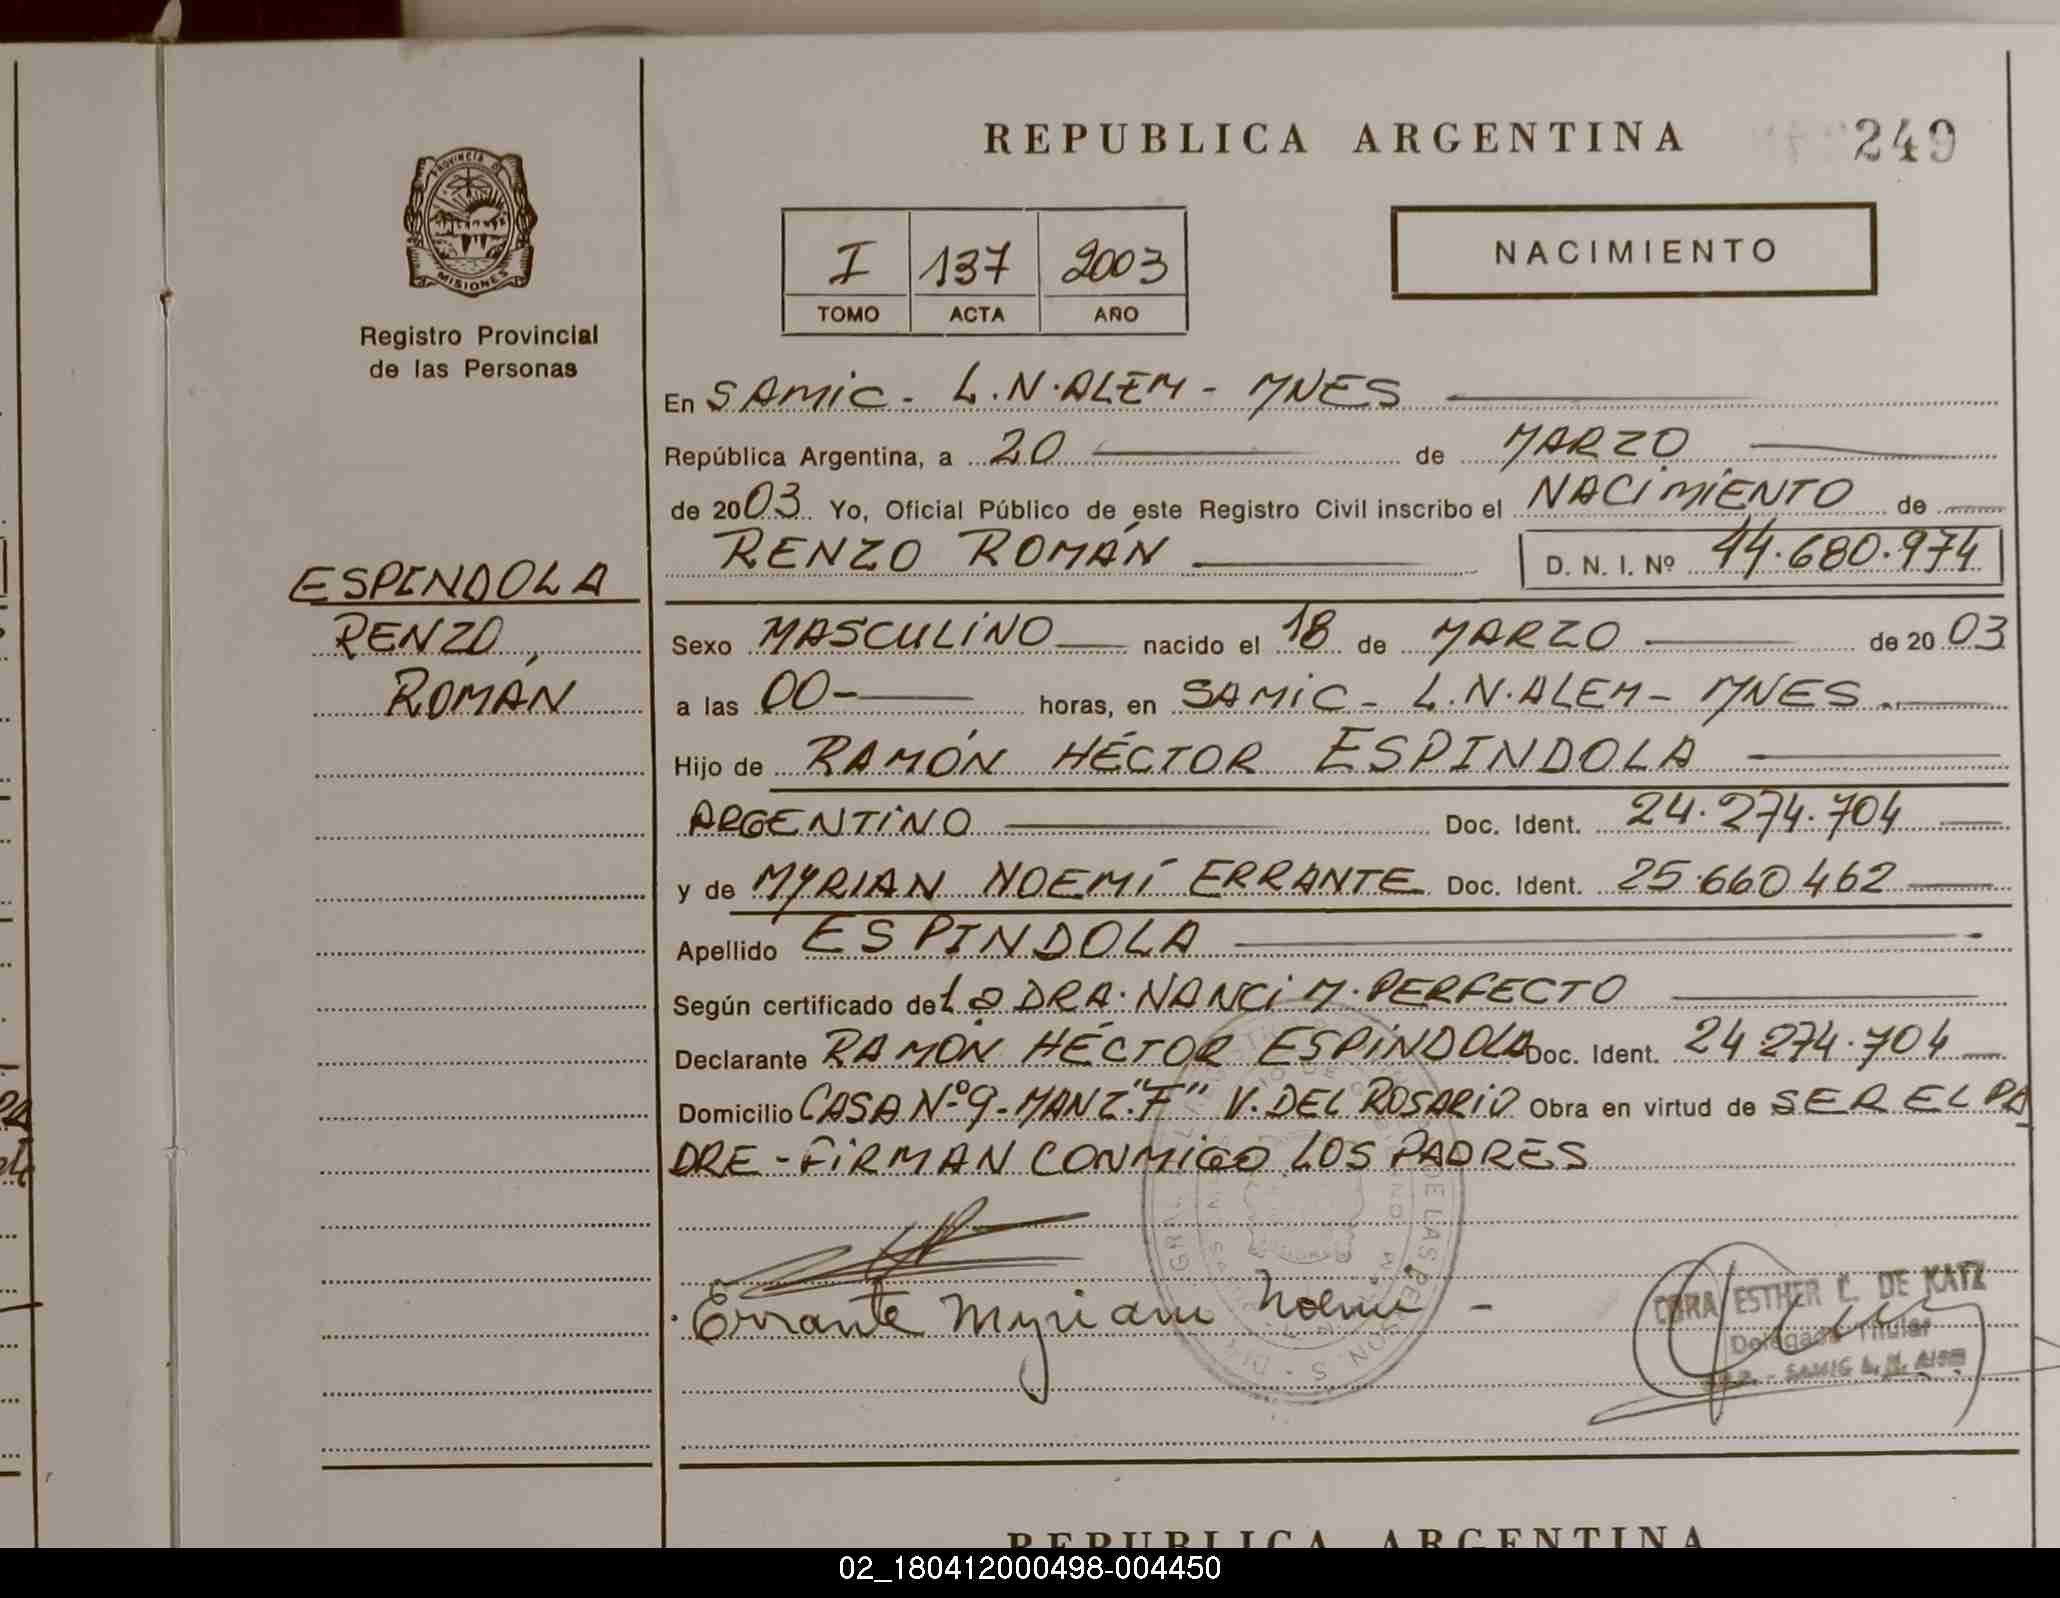 REPUBLICA ARGENTINA
249
PROVINCIA DE
MISIONES
Registro Provincial
de las Personas
I 137 2003
TOMO ACTA AÑO
NACIMIENTO
En SAMIC - L.N.ALEM - MNES
República Argentina, a 20 de MARZO
de 2003 Yo, Oficial Público de este Registro Civil inscribo el NACIMIENTO de
RENZO ROMÁN D. N. I. Nº 44.680.974
ESPINDOLA
RENZO
ROMÁN
Sexo MASCULINO nacido el 18 de MARZO de 2003
a las 00- horas, en SAMIC - L.N.ALEM - MNES.
Hijo de RAMÓN HÉCTOR ESPINDOLA
ARGENTINO Doc. Ident. 24.274.704
y de MYRIAN NOEMÍ ERRANTE Doc. Ident. 25.660462
Apellido ESPINDOLA
Según certificado de La DRA. NANCI M. PERFECTO
Declarante RAMÓN HÉCTOR ESPINDOLA Doc. Ident. 24 274.704
Domicilio CASA Nº 9 - MANZ. "F" V. DEL ROSARIO Obra en virtud de SER EL PA
DRE - FIRMAN CONMIGO LOS PADRES
Errante Myriam Noemi -
ESTHER C. DE KATZ
Delegada Titular
SAMIC L. N. ALEM
REPUBLICA ARGENTINA
02_180412000498-004450